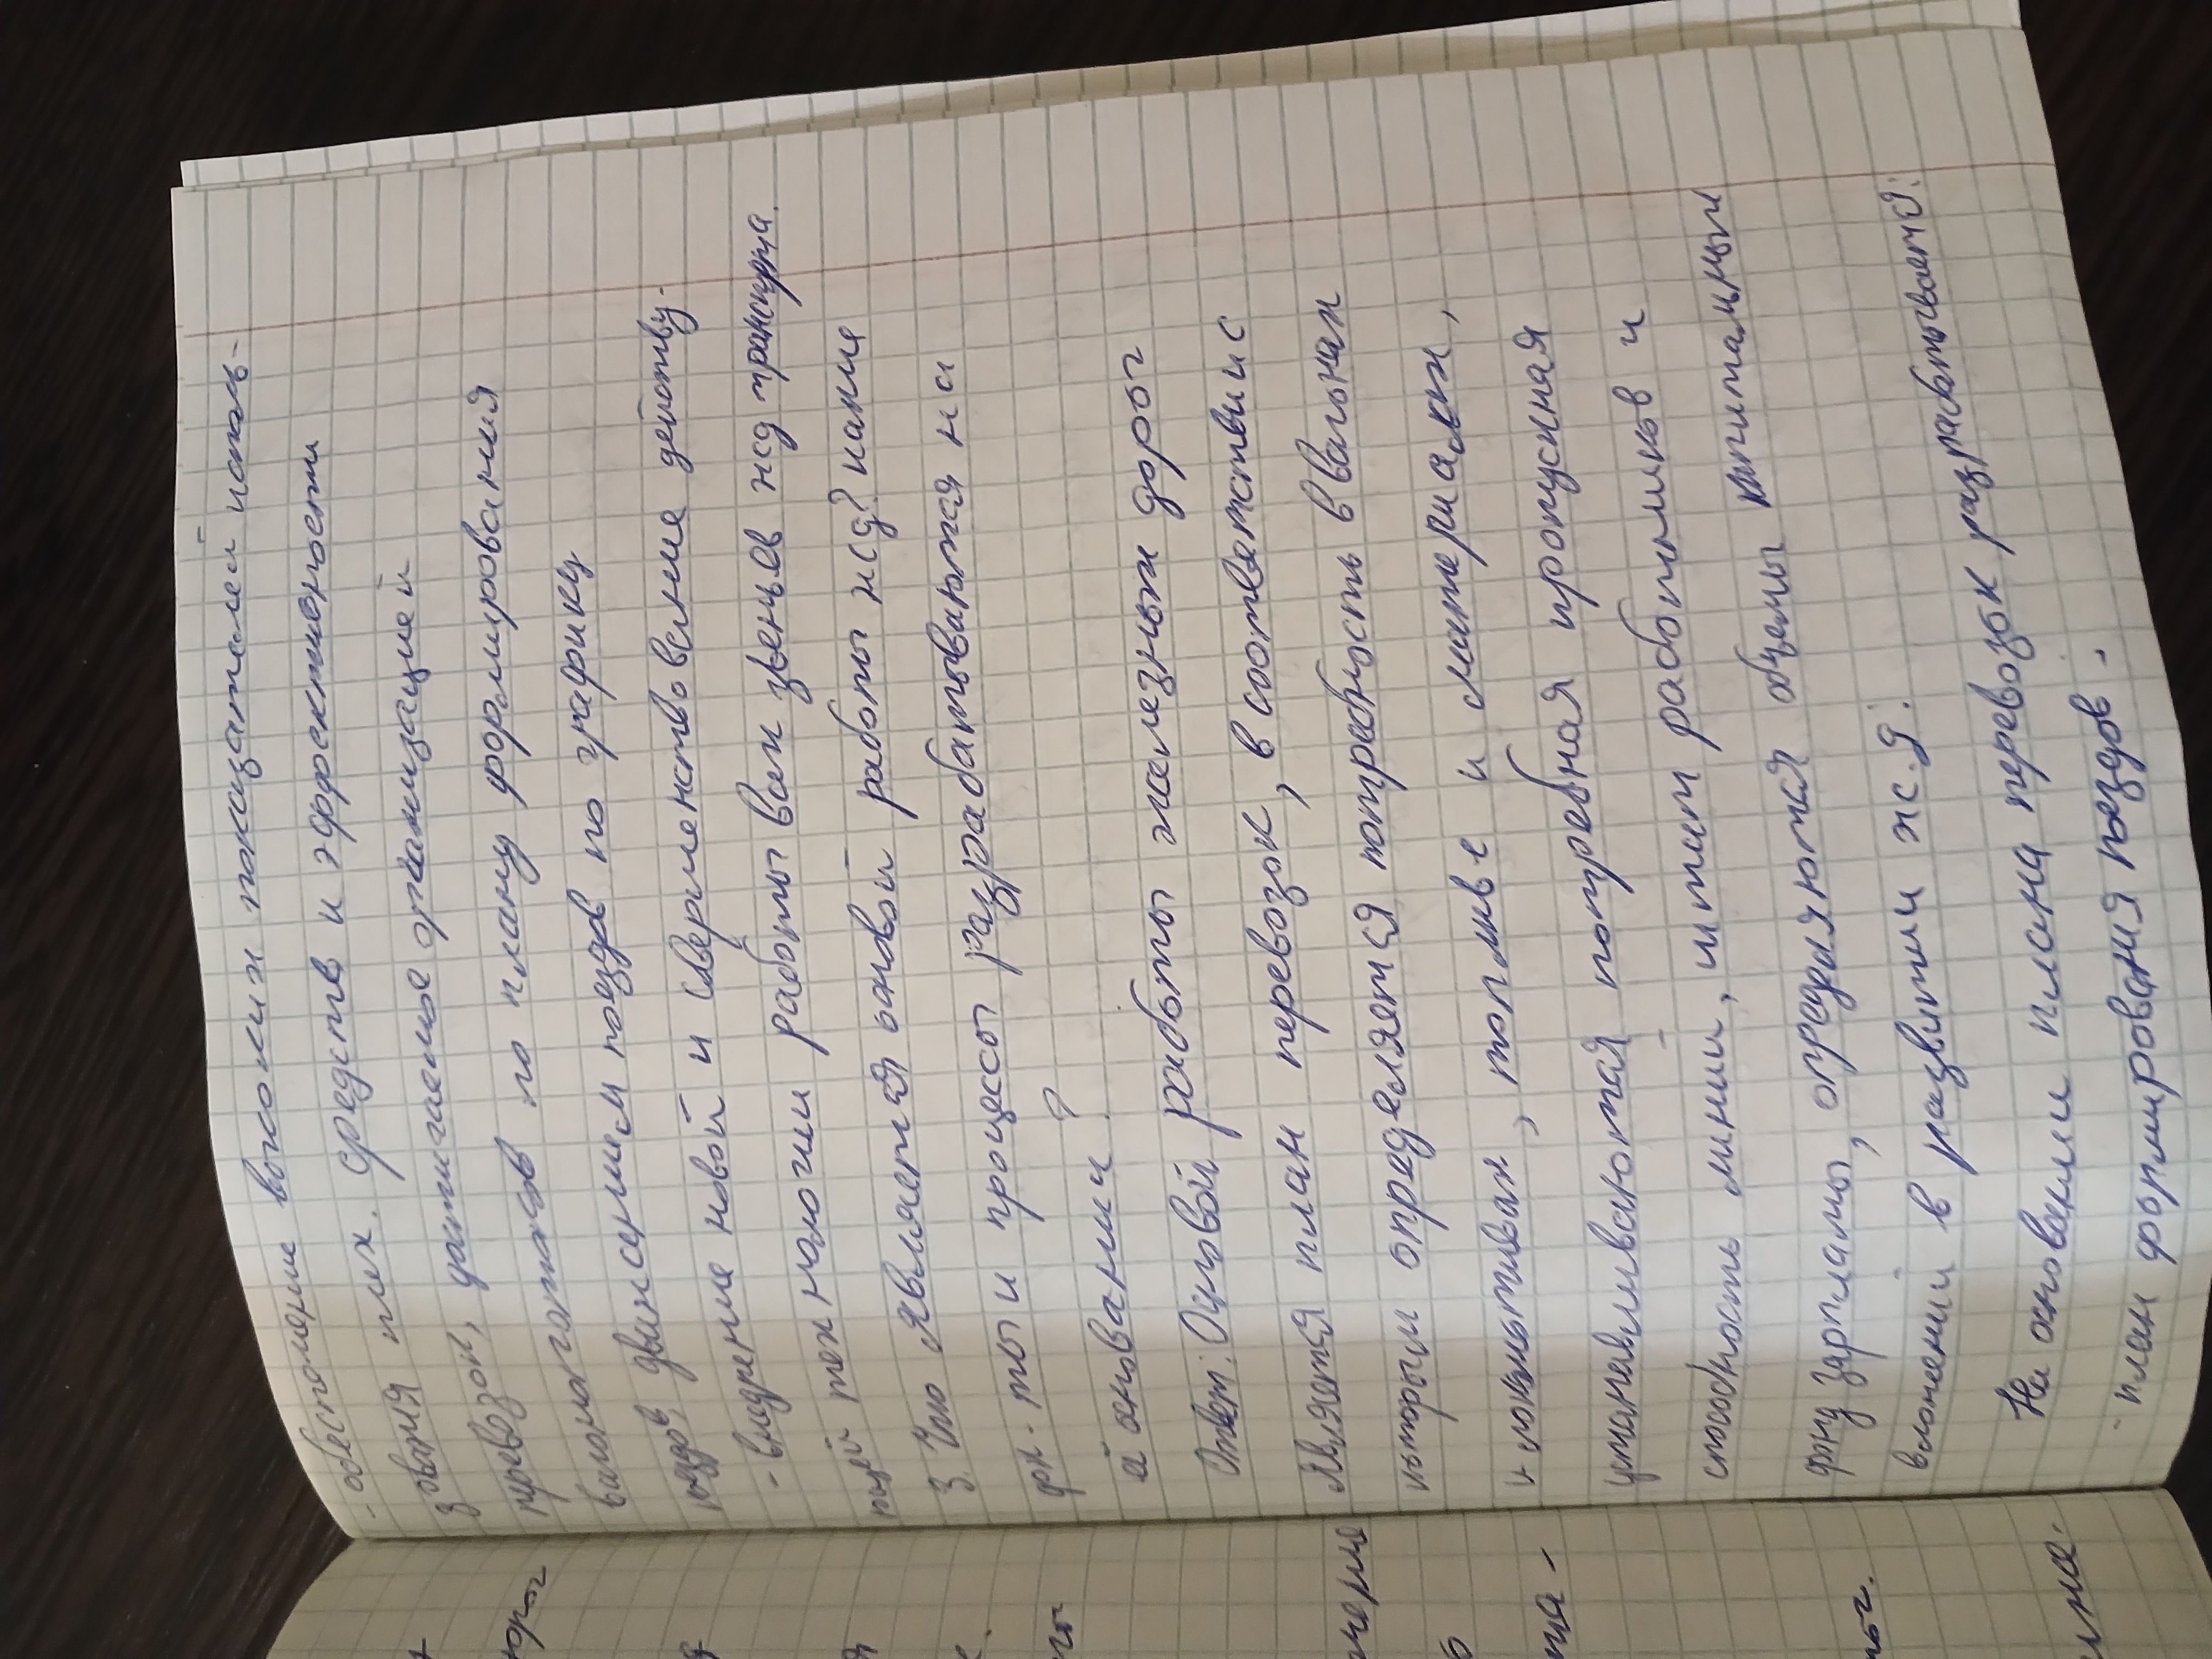 - обеспомение высоких показателей исполь-
зования тех. средств и эффективности
перевозок, достигаемое организацией
вагонопотоков по плану формирования
поездов, движением поездов по графику
- внедрение новой и совершенствование действу-
ющей технологии работы всех звеньев жд транспорта.
3. Что является основой работы жд? какие
док-ты и процессы разрабатываются на
её основании?
Ответ: Основой работы железных дорог
является план перевозок, в соответствии с
которым определяется потребность в вагонах
и локомотивах, топливе и материалах,
устанавливаются потребная пропускная
способность линии, штат работников и
фонд зарплаты, определяются объемы капитальных
вложений в развитии ж.д.
На основании плана перевозок разрабатывается:
- план формирования поездов -